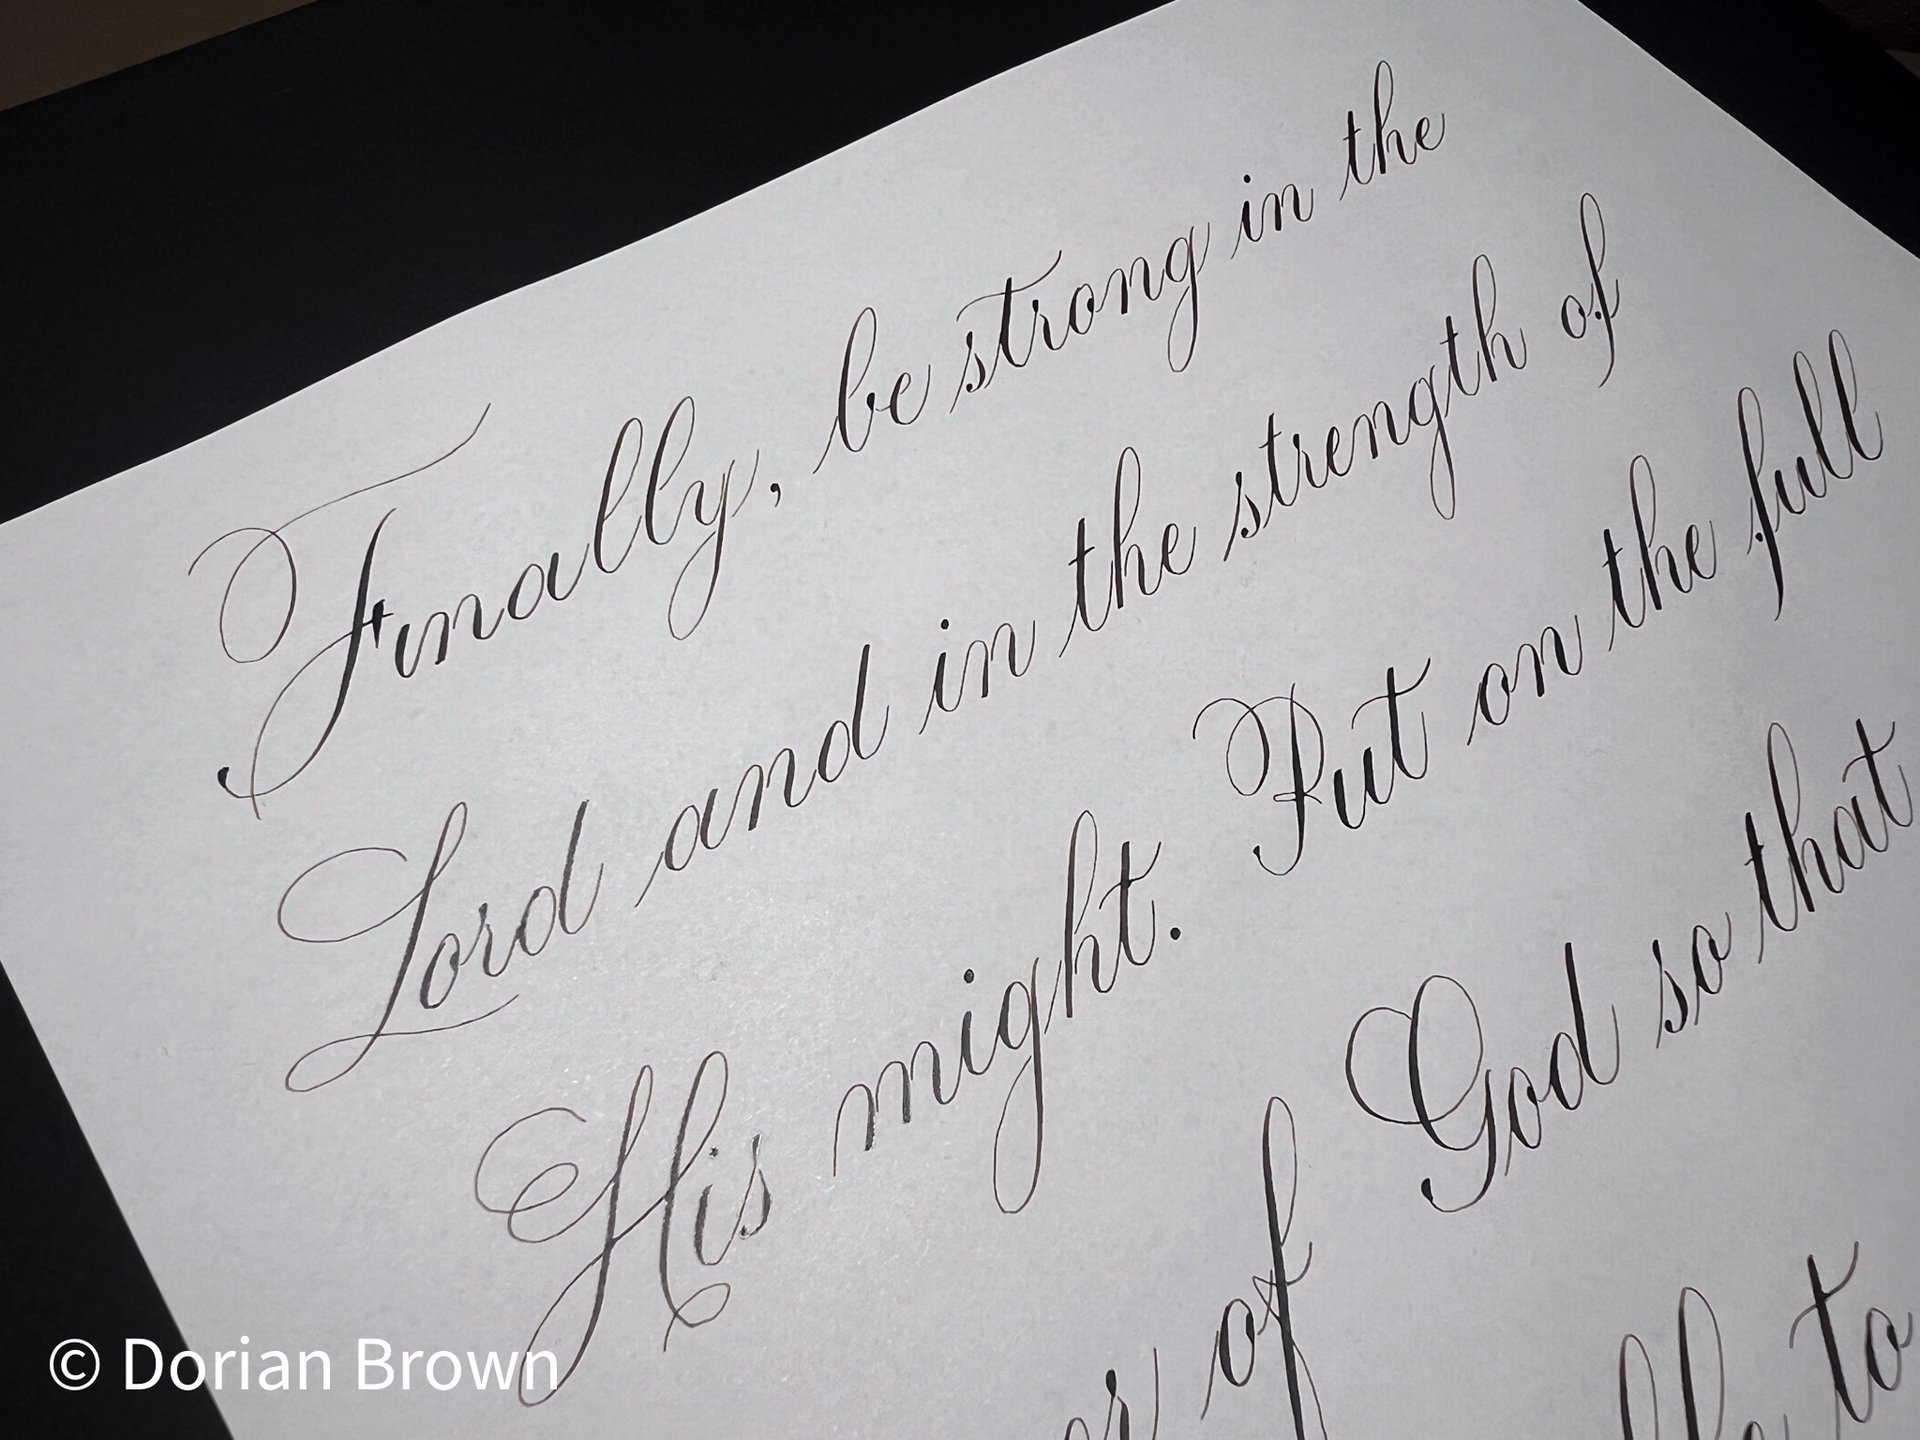 Finally, be strong in the
Lord and in the strength of
His might. Put on the full
of God so that
to
© Dorian Brown